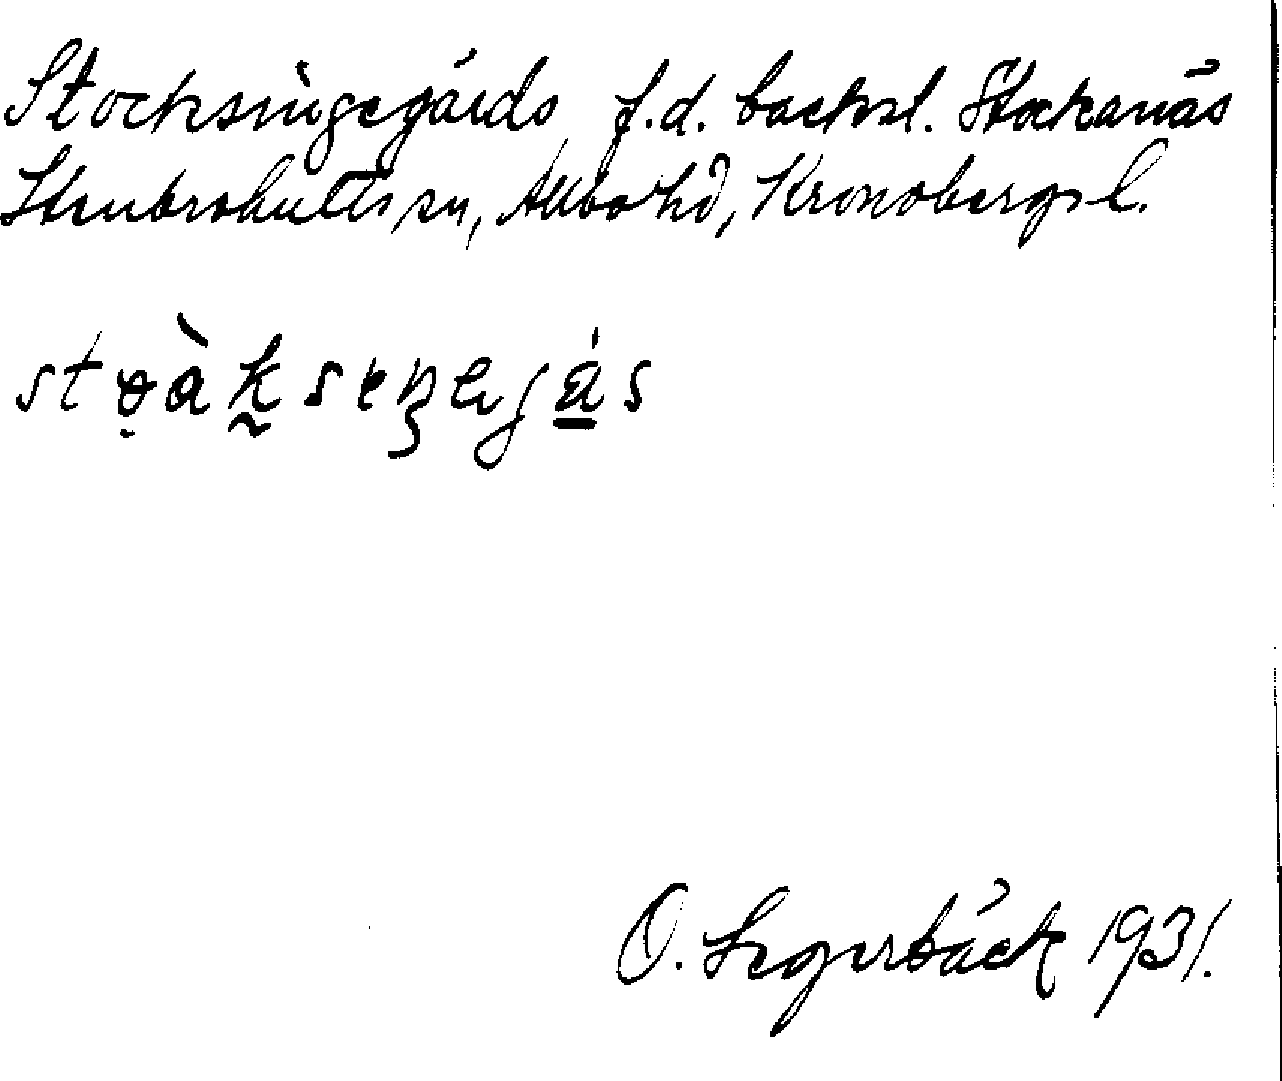 Stocksingegårds, f.d. backsl. Stockanäs
Stenbrohults sn, Allbo hd, Kronobergs l.
O. Segerbäck 1931.